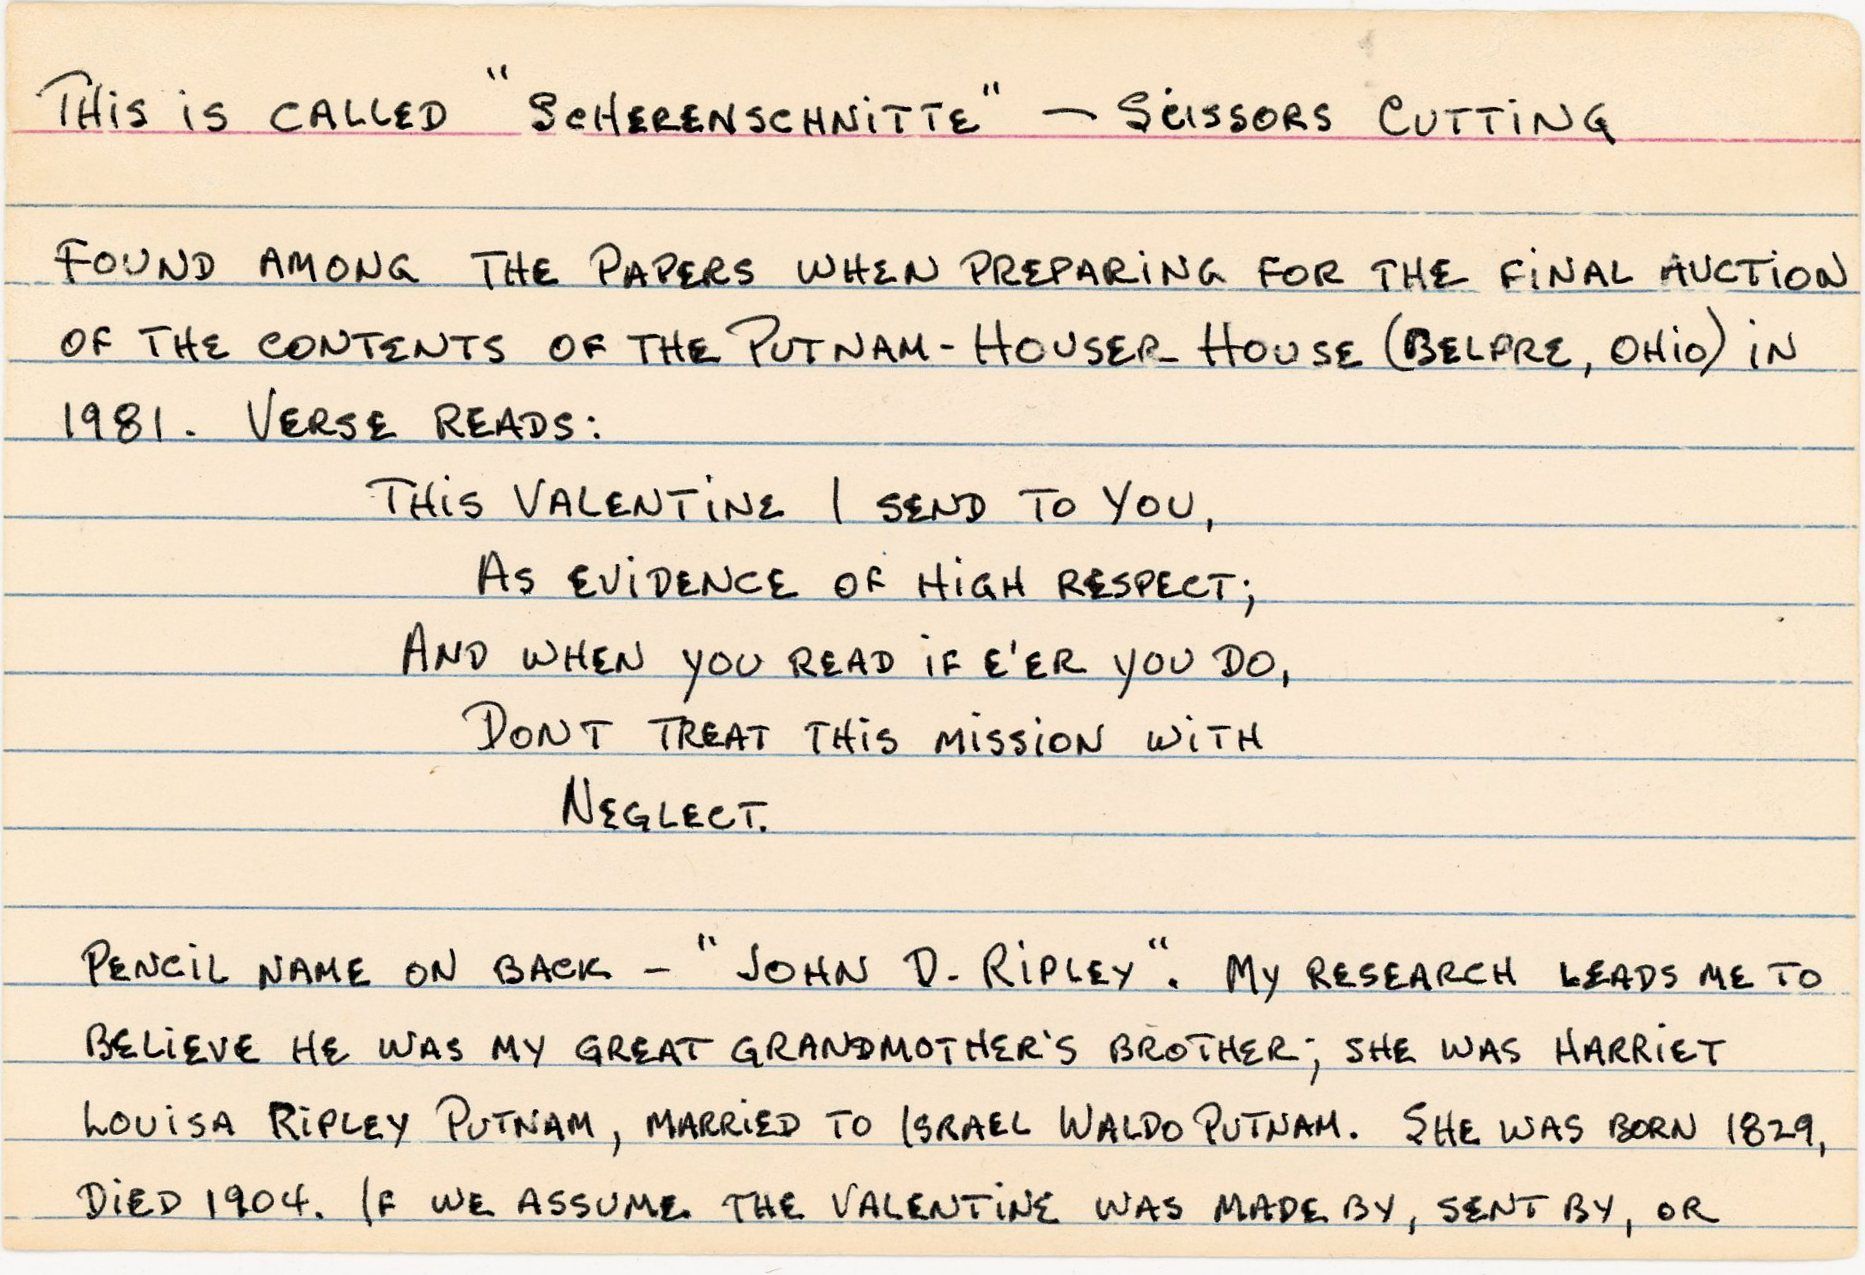 THiS iS CALLED "SCHERENSCHNiTTE" — SCiSSORS CUTTiNG
FOUND AMONG THE PAPERS WHEN PREPARiNG FOR THE FiNAL AUCTiON
OF THE CONTENTS OF THE PUTNAM-HOUSER HOUSE (BELPRE, OHiO) iN
1981. VERSE READS:
THiS VALENTiNE I SEND TO YOU,
AS EViDENCE OF HiGH RESPECT;
AND WHEN YOU READ iF E'ER YOU DO,
DONT TREAT THiS MiSSiON WiTH
NEGLECT.
PENCiL NAME ON BACK - "JOHN D. RiPLEY". MY RESEARCH LEADS ME TO
BELiEVE HE WAS MY GREAT GRANDMOTHER'S BROTHER; SHE WAS HARRiET
LOUiSA RiPLEY PUTNAM, MARRiED TO ISRAEL WALDO PUTNAM. SHE WAS BORN 1829,
DiED 1904. IF WE ASSUME THE VALENTiNE WAS MADE BY, SENT BY, OR